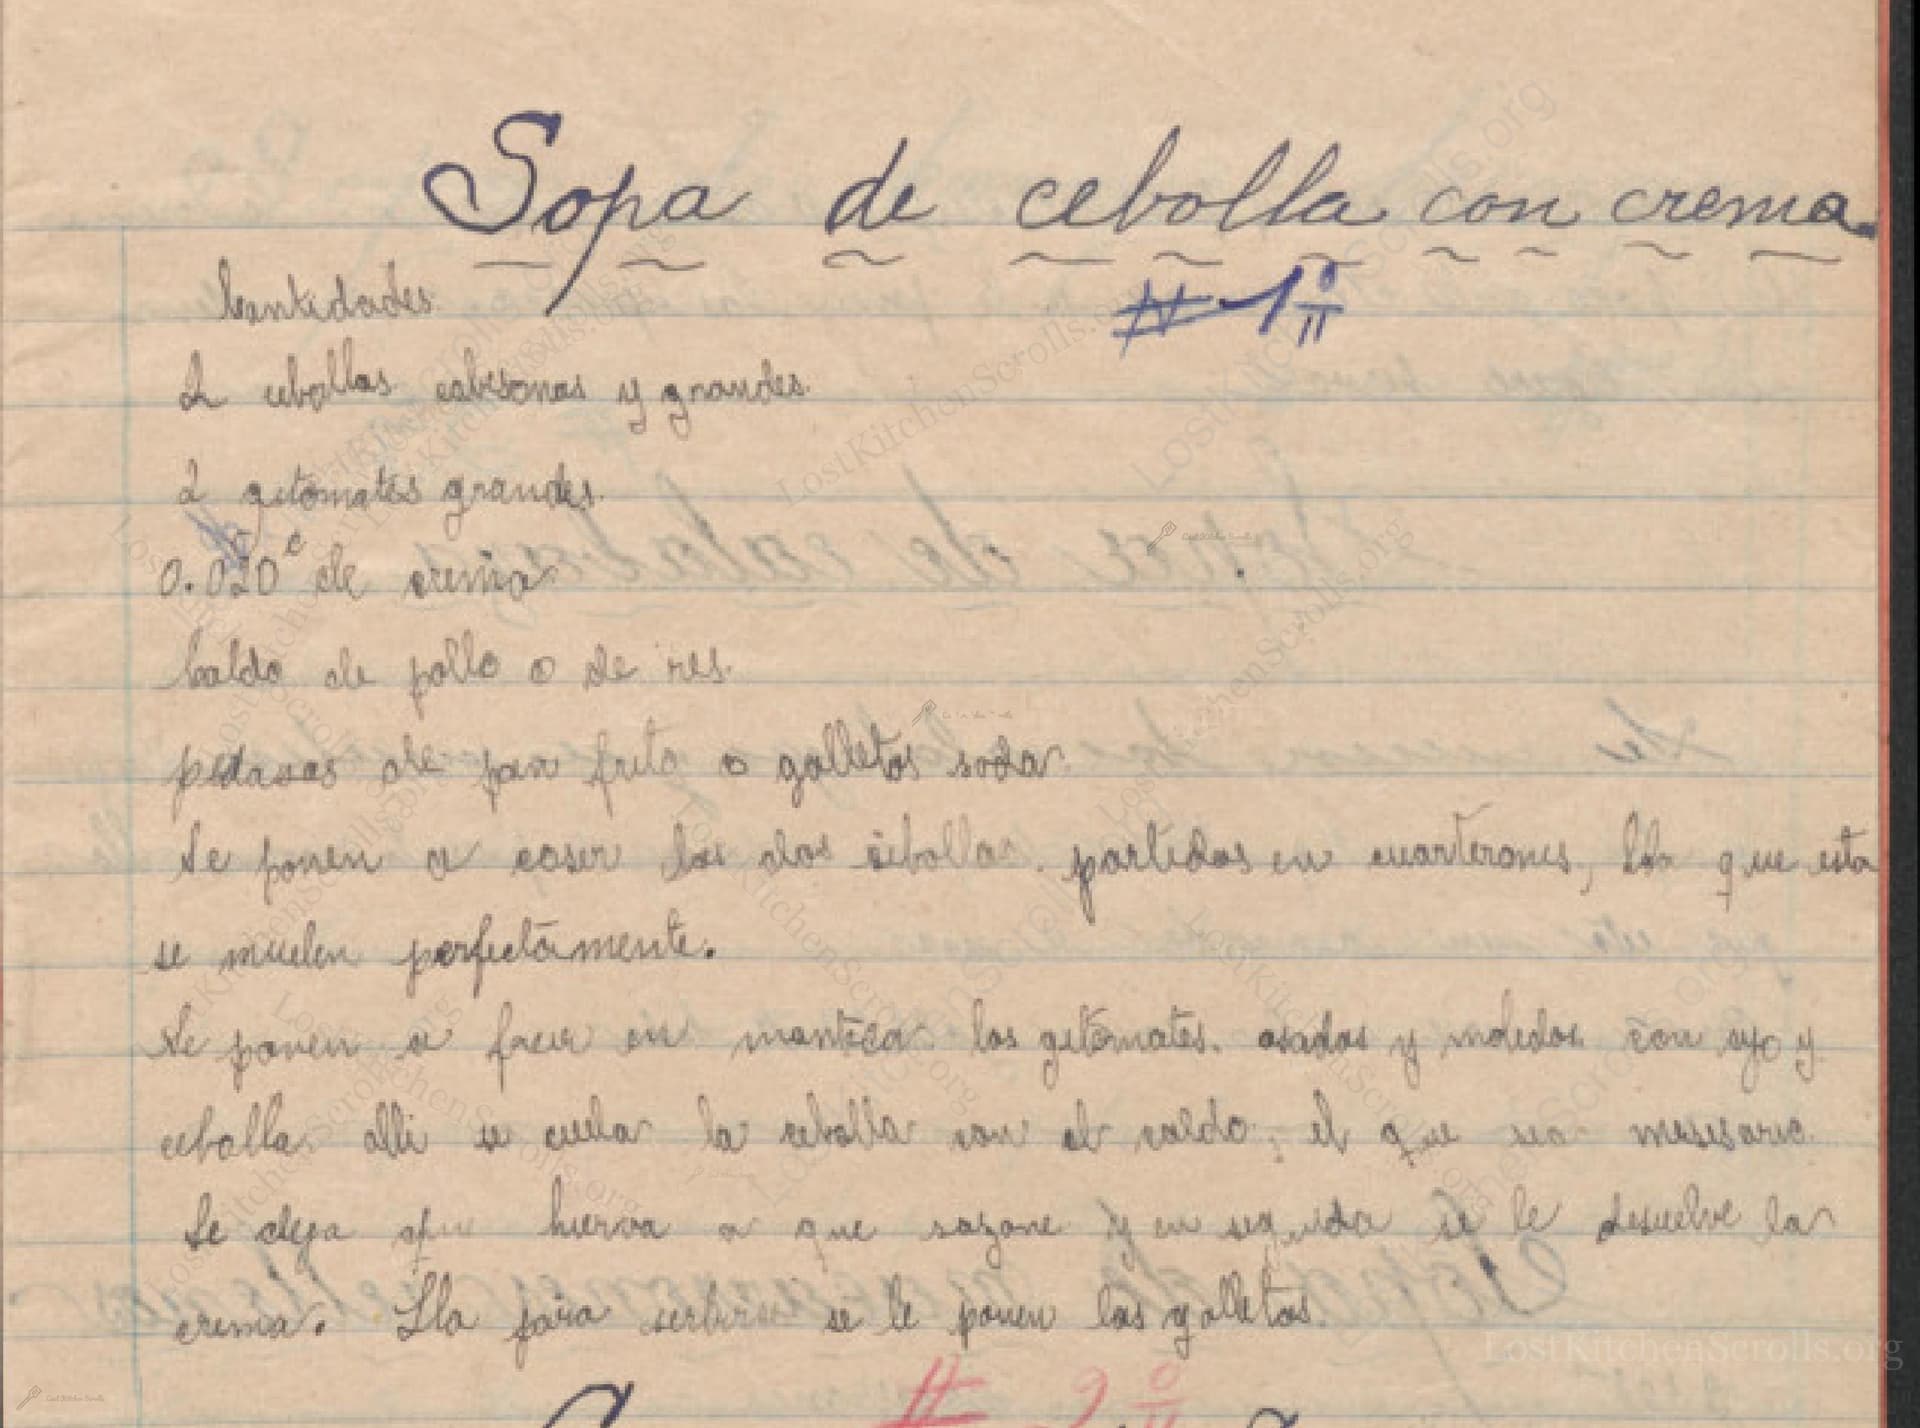 Sopa de cebolla con crema.
# 1 º
Cantidades.
2 cebollas cabesonas y grandes.
2 gitomates grandes.
0.020 c de crema
Caldo de pollo o de res.
pedasos de pan frito o galletas soda
Se ponen a coser las dos cebollas partidas en cuarterones, que esta
se muelen perfectamente.
Se ponen a freir en manteca los gitomates. asados y molidos con ajo y
cebolla alli se cuela la cebolla con el caldo, el que sea nesesario
Se deja que hierva a que sazone y en seguida se le desuelve la
crema. Lla para serbirse se le ponen las galletas.
# 2 º
LostKitchenScrolls.org